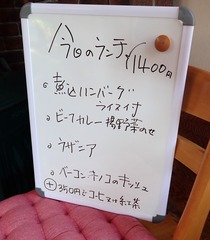 今日のランチ ¥1400円
煮込ハンバーグ
ライス付
ビーフカレー 揚野菜のせ
ラザニア
ベーコンキノコのキッシュ
+350円でコーヒーor紅茶